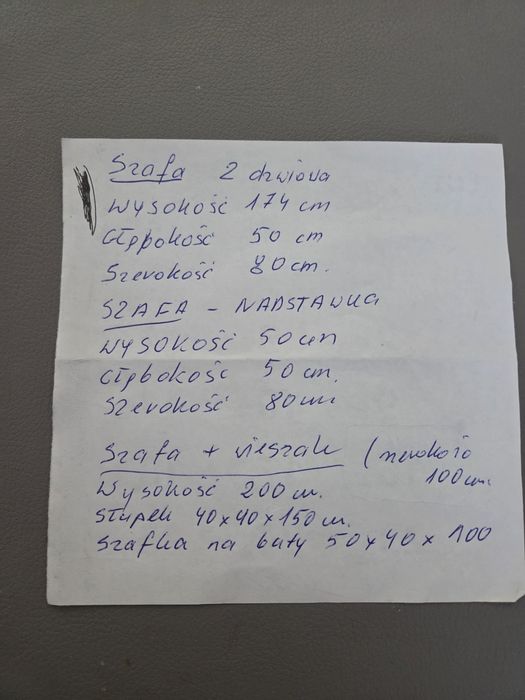 Szafa 2 drzwiowa
Wysokość 174 cm
Głębokość 50 cm
Szerokość 80 cm.
SZAFA - NADSTAWKA
WYSOKOŚĆ 50 cm
Głębokość 50 cm.
Szerokość 80 cm
Szafa + wieszak (szerokość
100 cm.
Wysokość 200 cm.
Słupek 40x40x150 cm.
Szafka na buty 50x40x100